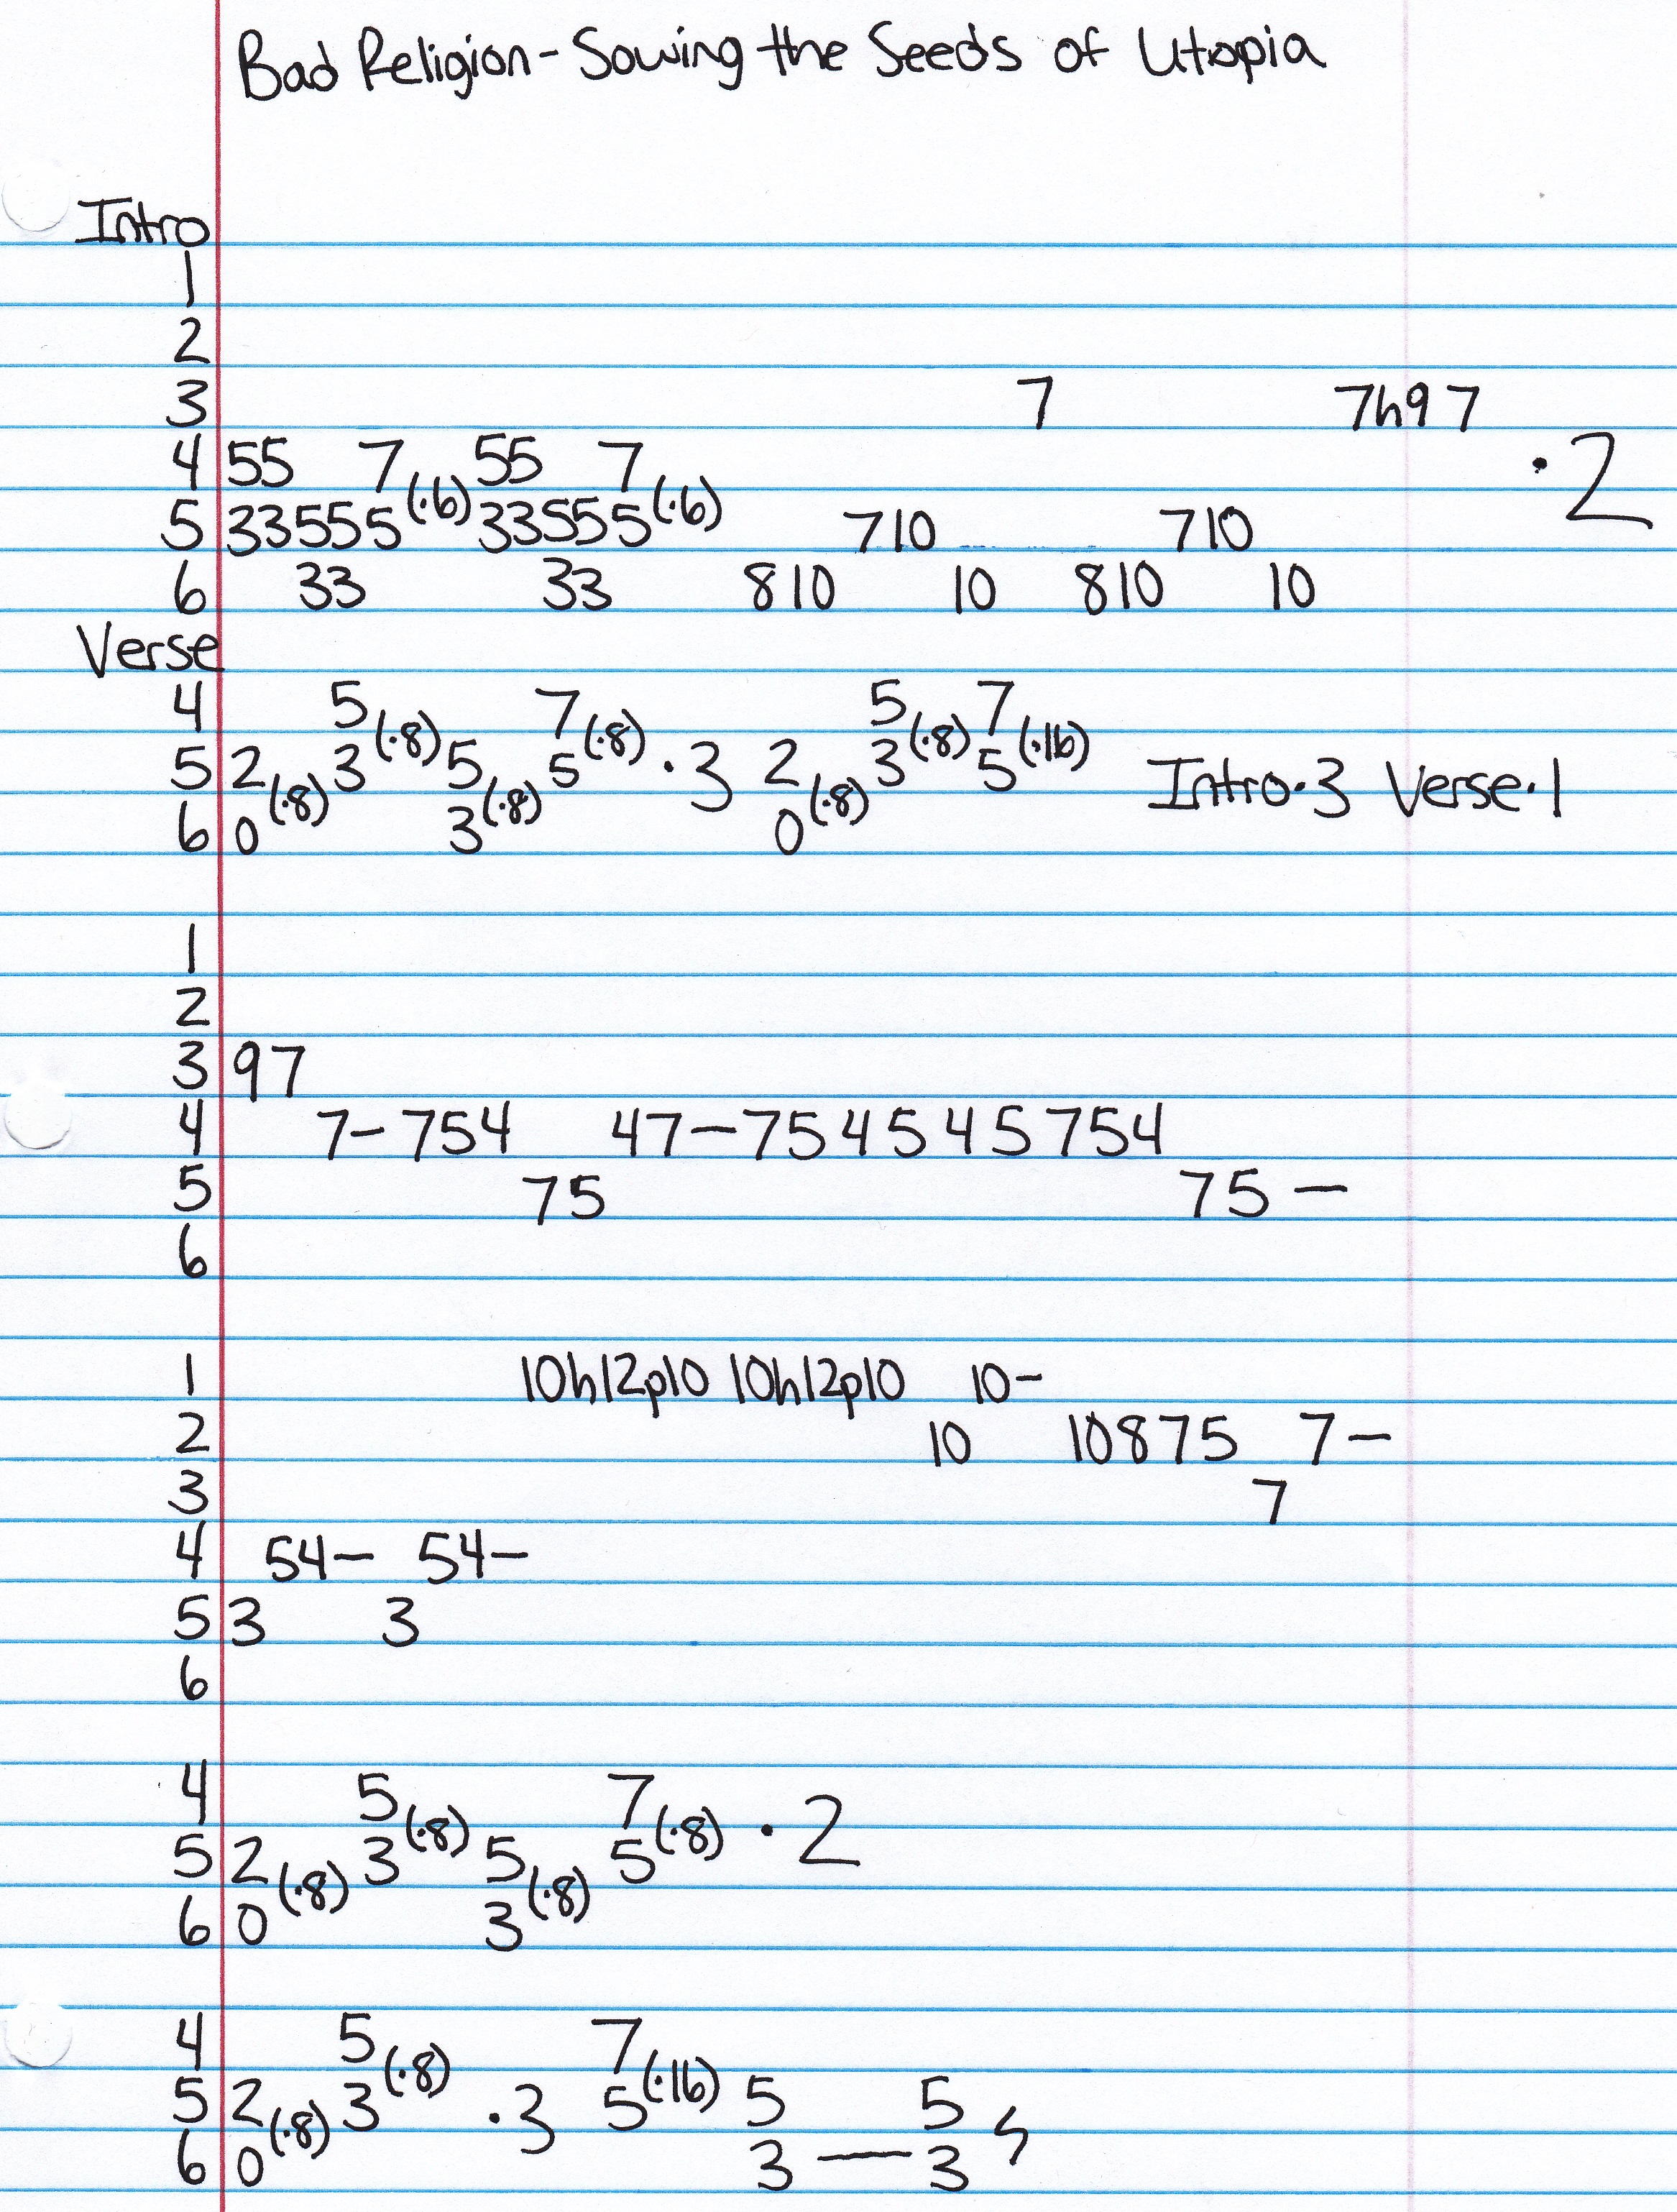 Bad Religion - Sowing the Seeds of Utopia
Intro
1
2
3 7 7h9 7
4 55 7 55 7 ·2
5 33555 (·6) 33555 (·6) 710 710
6 33 33 810 10 810 10
Verse
4 5 7 5 7
5 2 (·8) 3 (·8) 5 (·8) 5 (·8) ·3 2 (·8) 3 (·8) 5 (·16) Intro·3 Verse·1
6 0 3 0
1
2
3 97
4 7-754 47-75 45 45 754
5 75 75 -
6
1 10h12p10 10h12p10 10-
2 10 10875 7-
3 7
4 54- 54-
5 3 3
6
4 5 7
5 2 (·8) 3 (·8) 5 (·8) 5 (·8) ·2
6 0 3
4 5 7
5 2 (·8) 3 (·8) ·3 5 (·16) 5 5
6 0 3 — 3